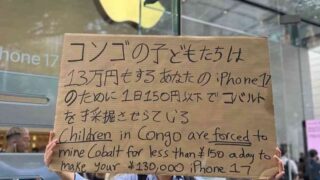 iPhone 17
コンゴの子どもたちは
13万円もするあなたのiPhone17
のために1日150円以下でコバルト
を採掘させられている
Children in Congo are forced to
mine Cobalt for less than ¥150 a day to
make your ¥130,000 iPhone 17